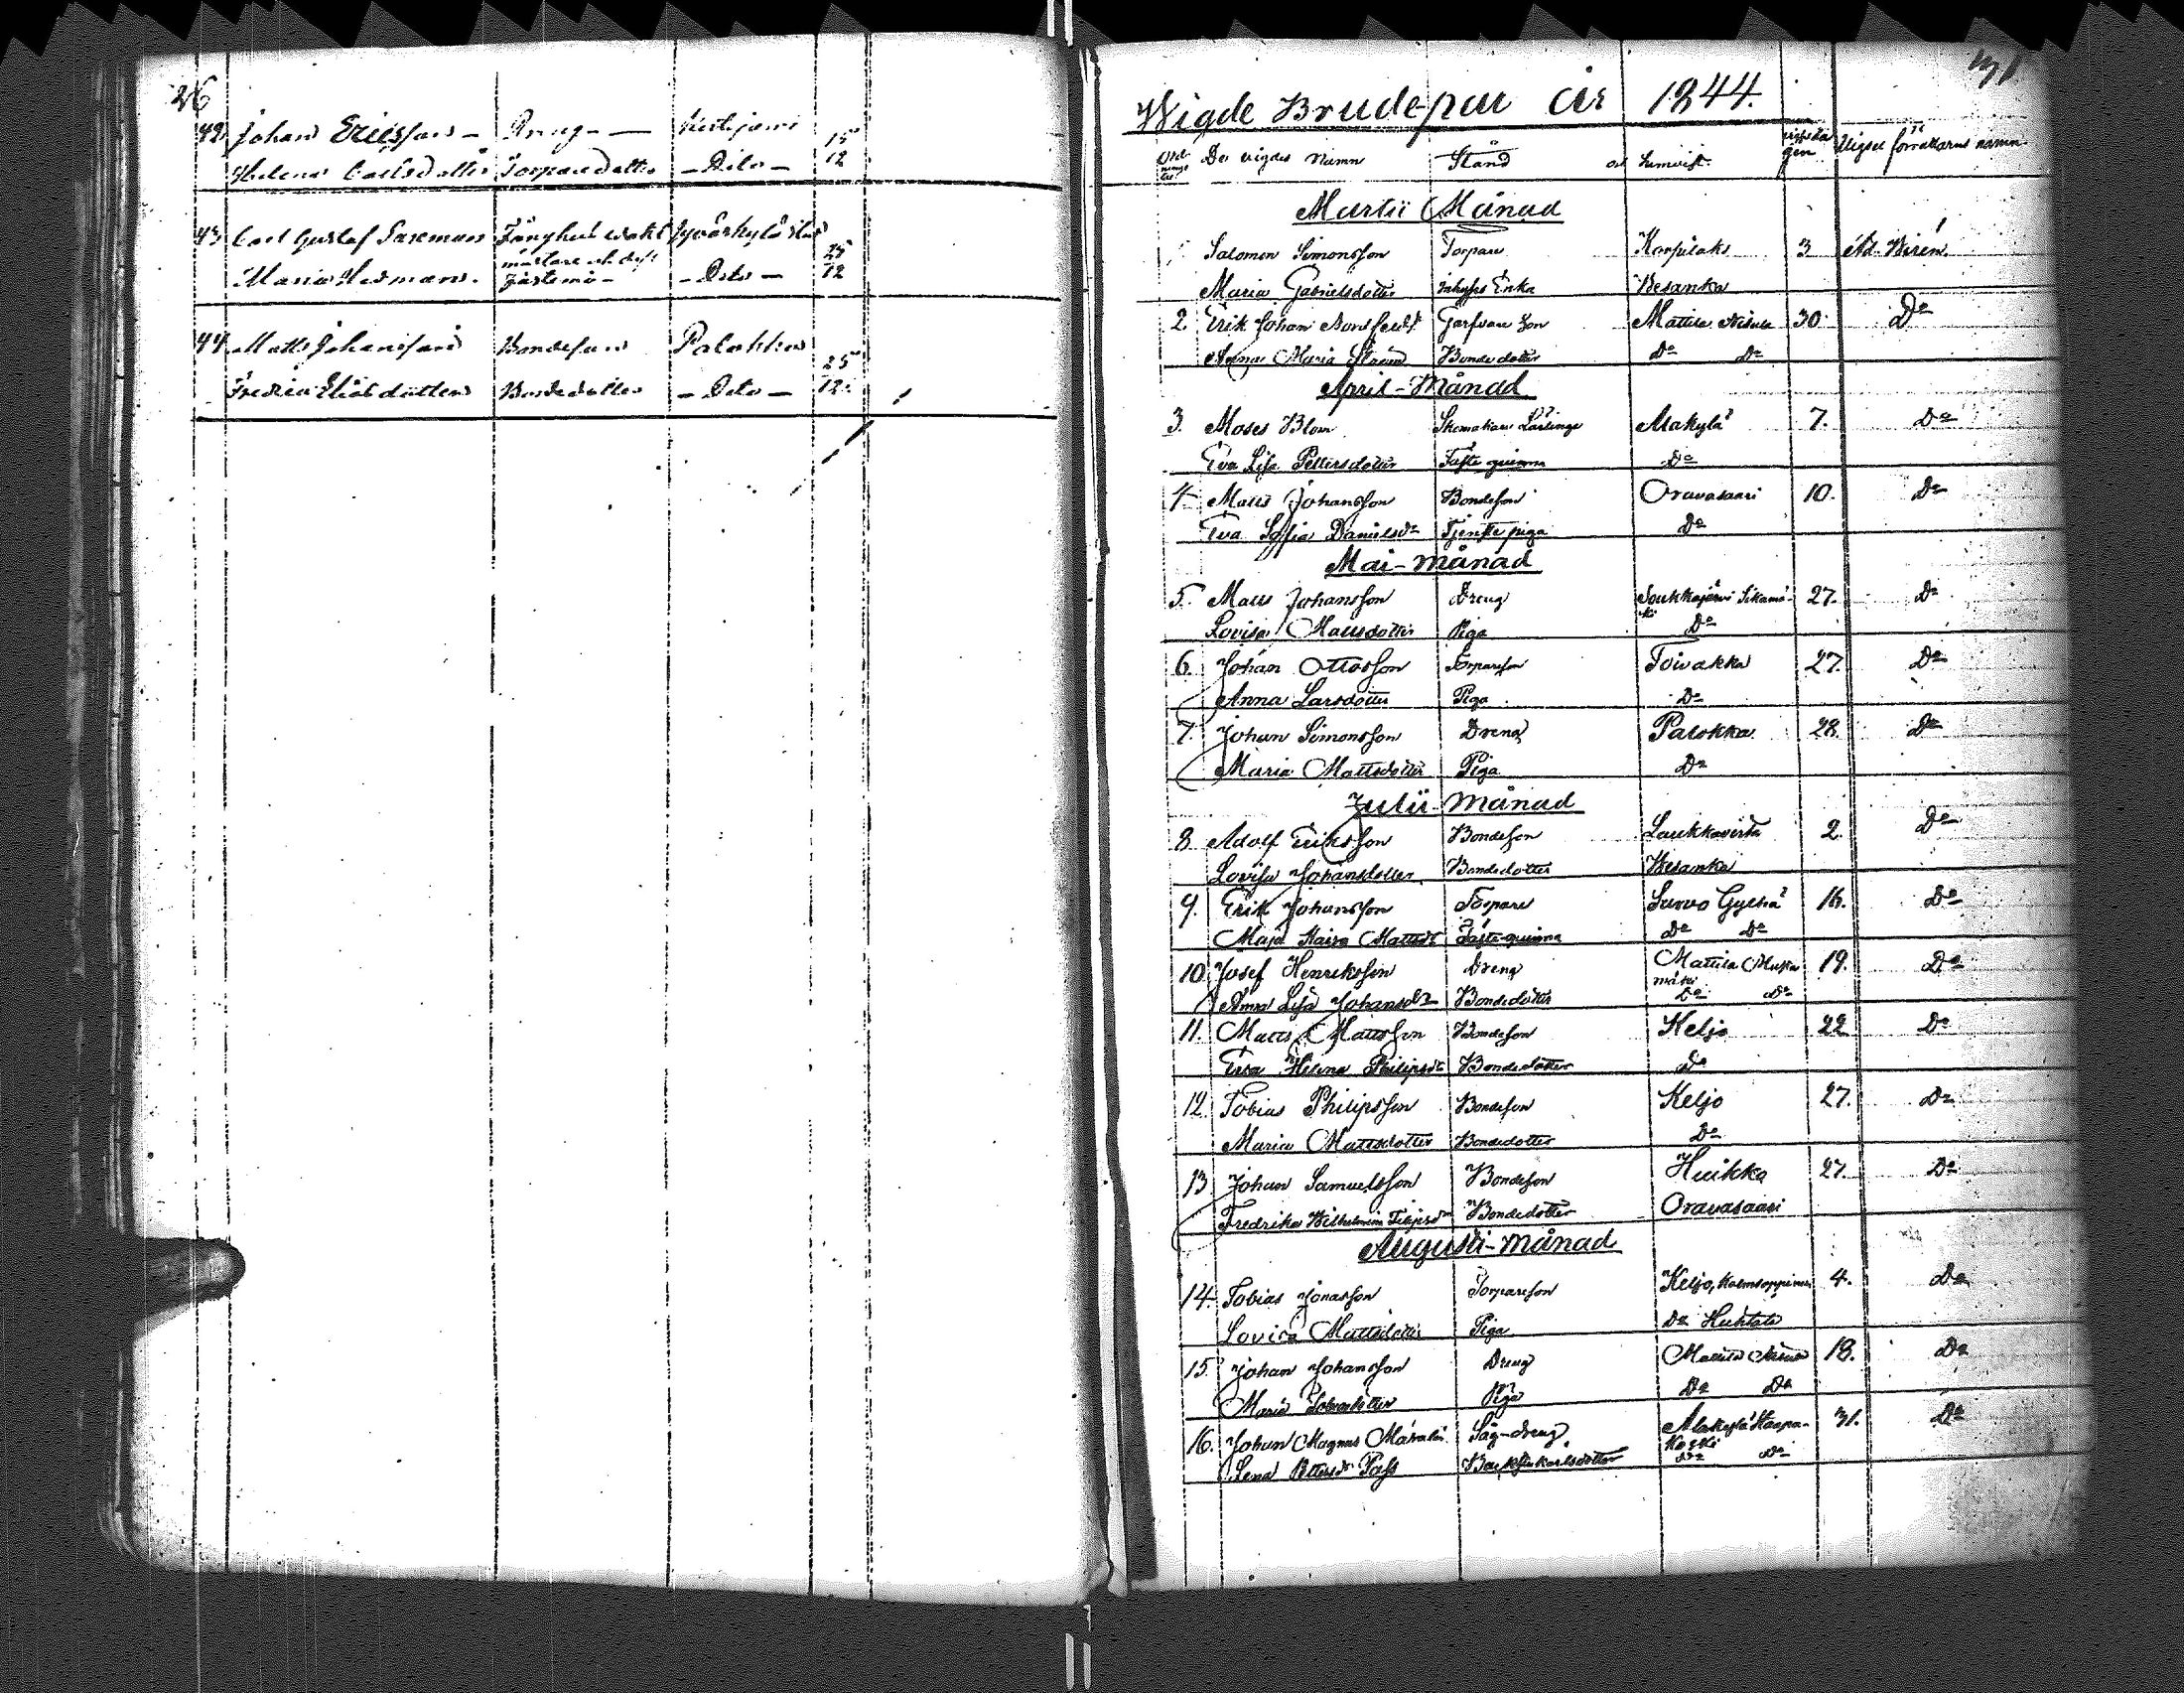 26
42 Johan Ericsson – Dreng –
15
Helena Carlsdotter Torparedotter – Dito – 12
43 Carl Gustaf Saxman Fånghus wakt Jyväskylä stad
mästare och
25
Maria Hedman – Dito – 12
44 Matts Johansson Bondeson Palokka
25
Fredrica Eliædotter Bondedotter – Dito – 12
31
Wigde Brudepar år 1844.
De vigdes namn Stånd och hemvist Vigsel förrättarens namn
Martii Månad
Salomon Simonsson Torpare Korpilaks 3 Ad. Wirén
Maria Gabrielsdotter Inhyses Enka Vesanka
2. Erik Johan Garfvare son Mattila Nisula 30. Do
Anna Maria Strand Bonde dotter Do Do
April - Månad
3. Moses Blom Skomakare Lärlinge Alakylä 7. Do
Eva Lisa Pettersdotter Fäste qvinna Do
4. Matts Johansson Bondeson Oravasaari 10. Do
Eva Sofia Danielsdr Tjenste piga Do
Mai - månad
5. Matts Johansson Dreng 27. Do
Lovisa Mattsdotter Piga Do
6. Johan Ottosson Torpareson Toivakka 27. Do
Anna Larsdotter Piga Do
7. Johan Simonsson Dreng Palokka 28. Do
Maria Mattsdotter Piga Do
Julii - Månad
8 Adolf Eriksson Bondeson Laukkavirta 2. Do
Lovisa Johansdotter Bondedotter Vesanka
9. Erik Johansson Torpare 16. Do
Maja Kaisa Mattsdr Fäste qvinna Do Do
10 Josef Henriksson Dreng Mattila 19. Do
mäki
Anna Lisa Johansdr Bondedotter Do Do
11. Matts Mattsson Bondeson Keljo 22 Do
Eva Helena Philipsdr Bondedotter Do
12. Tobias Philipsson Bondeson Keljo 27. Do
Maria Mattsdotter Bondedotter Do
13 Johan Samuelsson Bondeson Huikko 27. Do
Fredrika Wilhelmina Filipsdr Bondedotter Oravasaari
Augusti - månad
14. Tobias Jonasson Torpareson Keljo, 4. Do
Lovisa Mattsdotter Piga Do
15. Johan Johansson Dreng Mattila Nisula 18. Do
Maria Piga Do Do
16. Johan Magnus Såg-dreng Alakylä Haapa- 31. Do
Koski
Lena Pettersdr Do Do